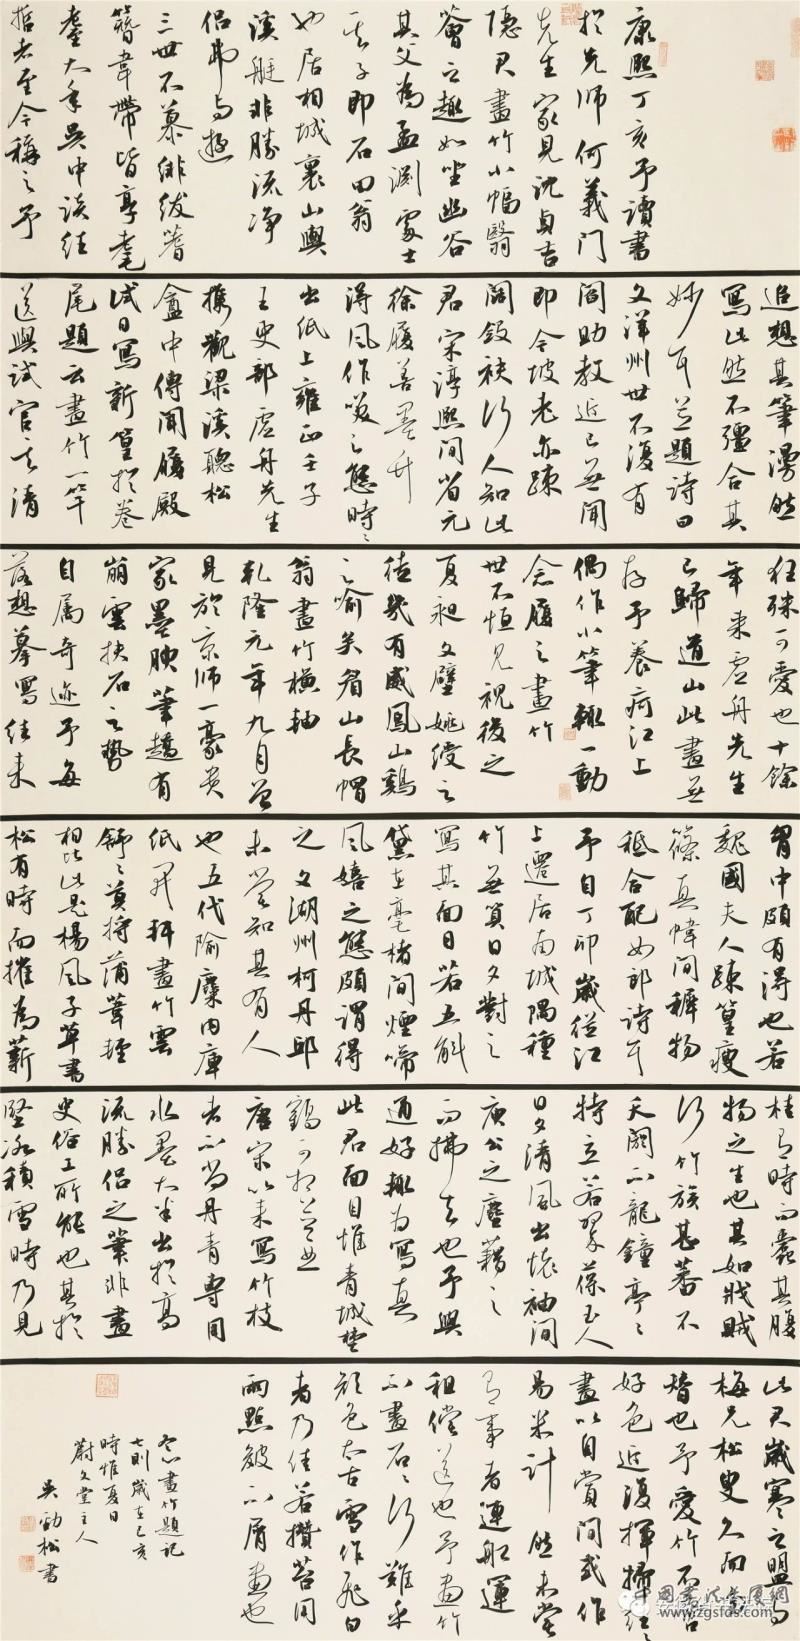 康熙丁亥予讀書
於先師何義門
先生家見沈貞吉
隱君畫竹小幅翳
薈之趣如坐幽谷
其父為孟淵處士
其子即石田翁
也居相城裏山輿
溪艇非勝流凈
侶弗与遊
三世不慕紼紱蓍
簪韋帶皆享耄
耋大年吳中談往
哲者至今稱之予
追想其筆漫然
寫此然不彊合其
妙耳并題詩曰
文洋州世不復有
閻助教近已無聞
即令坡老亦疎
闊鼓袂行人知此
君宋淳熙間省元
徐履善墨竹
得風作笑之態時時
出紙上雍正壬子
王吏部虛舟先生
攜觀梁溪聽松
盦中傳聞履殿
試日寫新篁於卷
尾題云畫竹一竿
送與試官其清
狂殊可愛也十餘
年來虛舟先生
已歸道山此畫無
存予養疴江上
偶作小筆輒一動
念履之畫竹
世不恒見視後之
夏昶文璧姚綬之
徒幾有威鳳山鷄
之喻矣眉山長帽
翁畫竹橫軸
乾隆元年九月曾
見於京師一豪貴
家墨腴筆趫有
崩雲抉石之勢
自屬奇迹予每
落想摹寫往來
胷中頗有得也若
魏國夫人疎篁瘦
篠真幃間穉物
秪合配女郎詩耳
予自丁卯歲從江
上遷居南城隅種
竹無算日夕對之
寫其面目若五斛
黛在毫楮間煙啼
風嬉之態頗謂得
之文湖州柯丹邱
未嘗知其有人
也五代隃麋內庫
紙开拜畫竹雲
舒舒莫將蒲葦輕
相比此是楊風子草書
松有時而摧為薪
桂有時而蠹其腹
物之生也其如戕賊
行竹族甚蕃不
夭閼不龍鐘亭亭
特立若翠葆玉人
日夕清風出懷袖間
庾公之塵藉之
而拂去也予與
通好輒為寫真
此君面目惟青城埜
鶴可相并
唐宋以來寫竹枝
者不尚丹青專用
水墨大半出於高
流勝侶之筆非畫
史俗工所能也其於
堅冰積雪時乃見
此君歲寒之盟與
梅兄松叟久而
替也予愛竹不啻
好色近復揮掃
畫以自賞間或作
易米計然未嘗
有事者連舡運
租償送也予畫竹
不畫石石行難乎
顏色太古雪作飛白
者乃佳若攢苔用
雨點皴不屑畫也
冬心畫竹題記
七則歲在己亥
時惟夏日
蔚文堂主人
吳勁松書
中國書法美展網
www.zgsfds.com